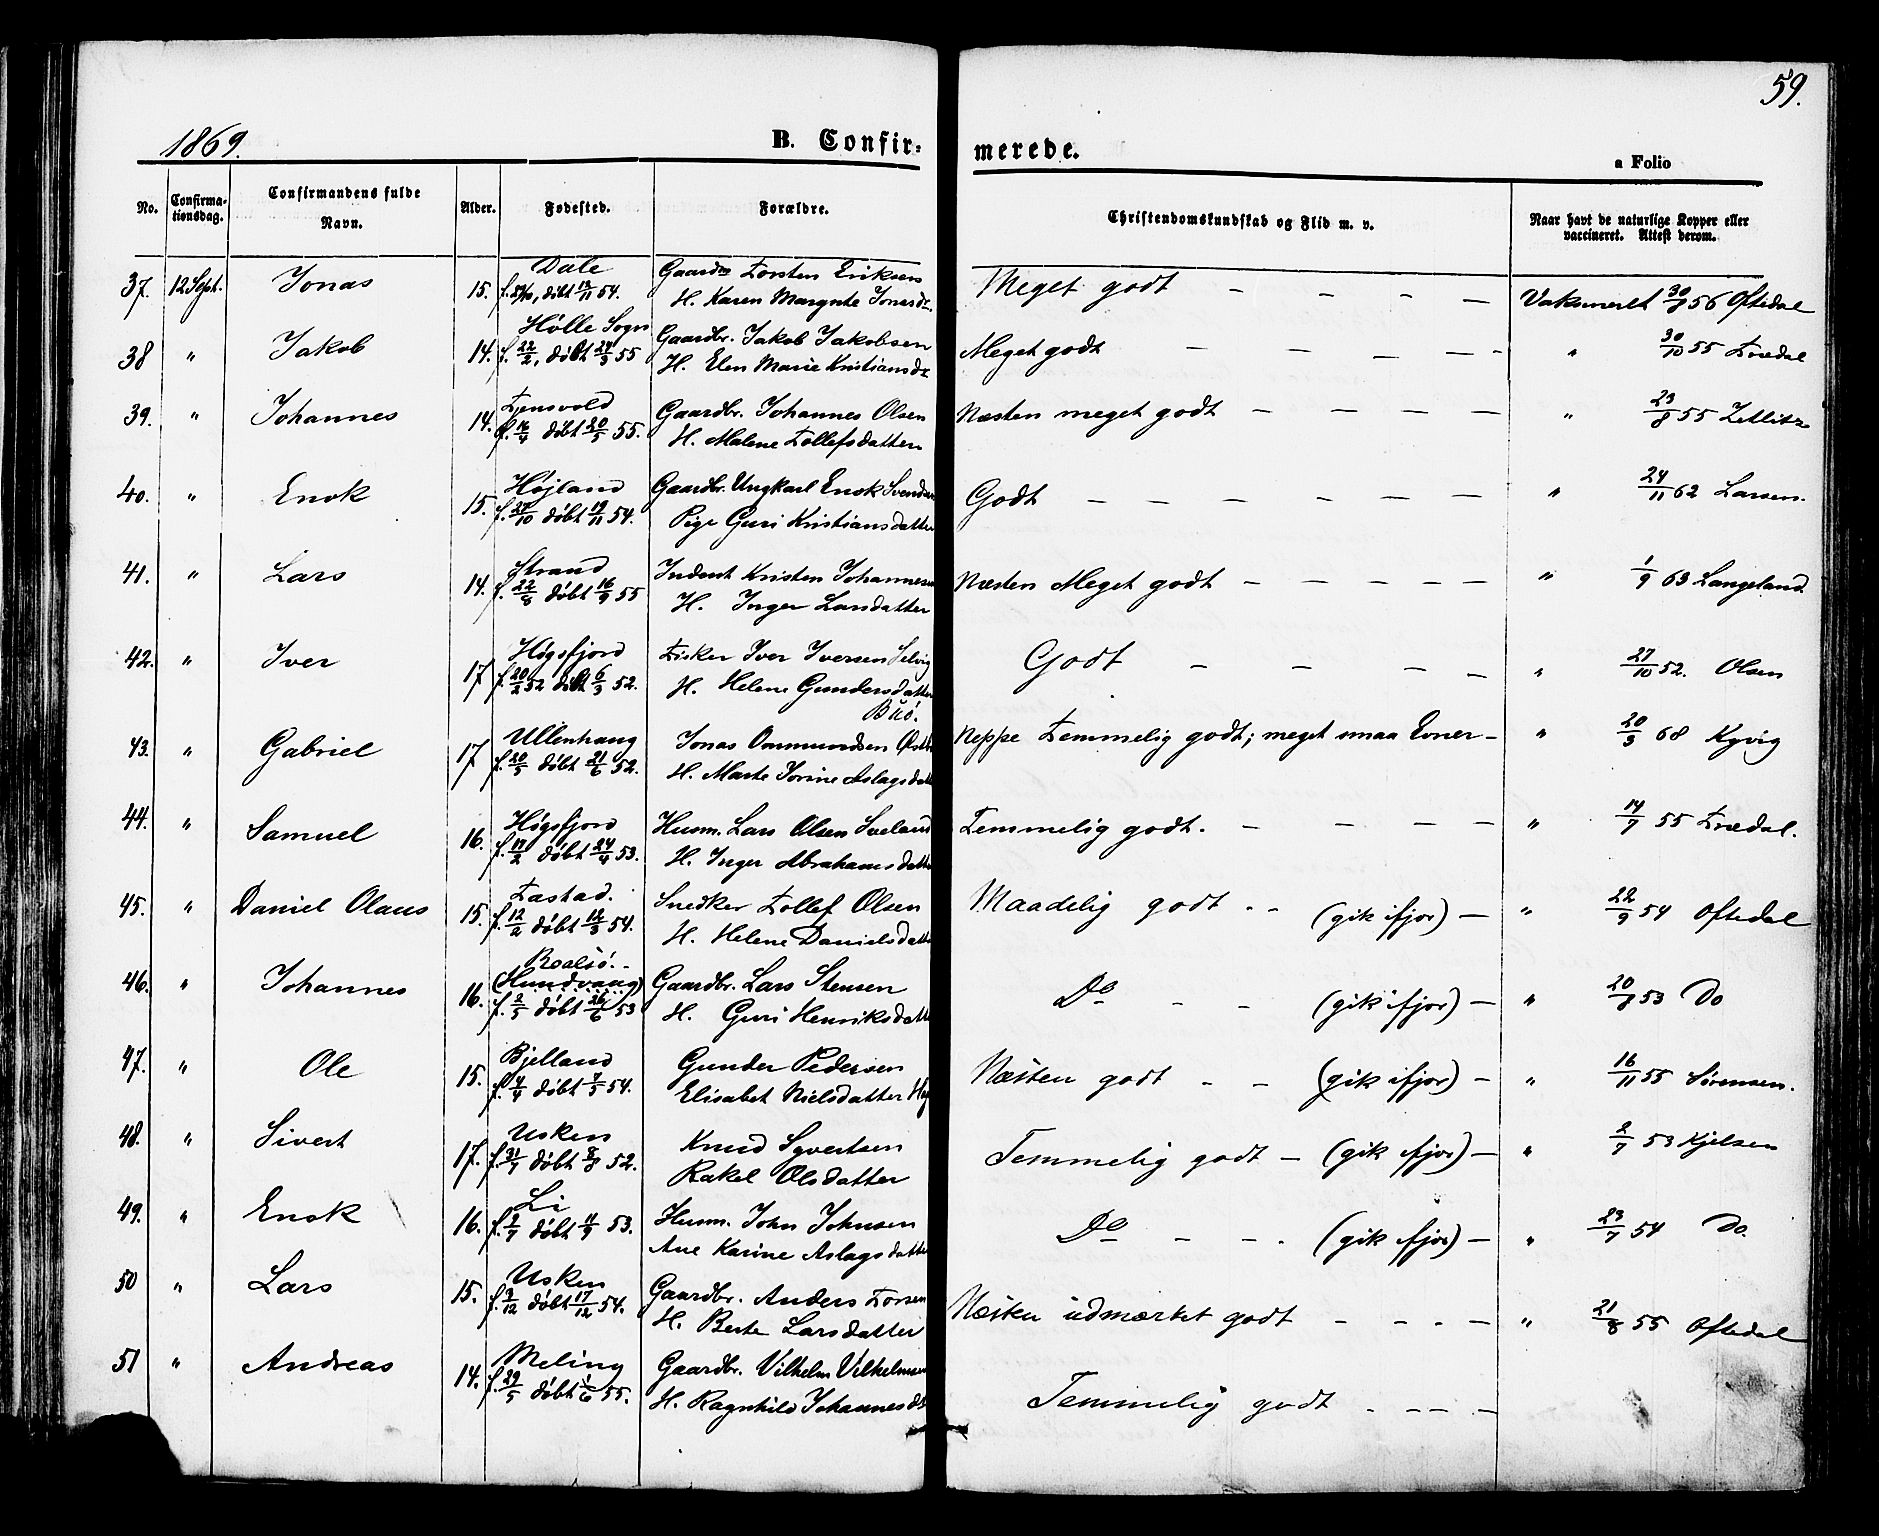 59.
1869.
B. Confir-
merede.
a Folio
No.
Confirma-
tionsdag.
Confirmandens fulde
Navn.
Alder.
Fødested.
Forældre.
Christendomskundskab og Flid m. v.
Naar havt de naturlige Kopper eller
vaccineret. Attest derom.
37. 12 Sept. Jonas 15. Dale Gaardbr Torsten Eriksen Meget godt — — — — Vaksineret 30/8 56 Oftedal
døbt 12/11 54. H. Karen Margrete Jonasdr.
38 " Jakob 14. Hølle Sogn Gaardbr. Jakob Jakobsen Meget godt — — — — " 30/10 55 Tvedal
f. 22/2, døbt 24/3 55 H. Elen Marie Kristiansdr
39. " Johannes 14. Tjensvold Gaardbr. Johannes Olsen Næsten meget godt — — — — " 23/8 55 Zetlitz
f. 16/4 døbt 20/5 55. H. Malene Tollefsdatter
40. " Enok 15. Højland Gaardbr. Ungkarl Enok Svendsen Godt — — — — — — " 24/11 62 Larsen.
f. 27/10 døbt 19/11 54. Pige Guri Kristiansdatter
41. " Lars 14. Strand Inderst Kristen Johannesen Næsten Meget godt — — — — — " 1/9 63 Langeland
f. 22/8 døbt 16/9 55 H. Inger Larsdatter
42. " Iver 17 Høgsfjord Fisker Iver Iversen Selvig Godt — — — — " 27/10 52. Olsen
f. 20/2 52 døbt 6/3 52. H. Helene Gundersdatter
Buø.
43. " Gabriel 17 Ullenhaug Jonas Ommundsen Neppe Temmelig godt; meget smaa Evner — " 20/3 68 Kyvig
f. 20/5 døbt 21/6 52. H. Marte Jorine Aslagsdatt
44. " Samuel 16. Høgsfjord Husm. Lars Olsen Sveland Temmelig godt. — — — — " 14/7 55 Tvedal.
f. 17/2 døbt 24/4 53. H. Inger Abrahamsdatte
45. " Daniel Olaus 15. Tastad. Snedker Tollef Olsen Maadelig godt - - (gik ifjor) — " 22/9 54 Oftedal
f. 12/2 døbt 12/3 54. H. Helene Danielsdatt
46. " Johannes 16. Roalsø.
(Hundvaag) Gaardbr. Lars Stensen Do - - (gik ifjor) — " 20/8 53 Do
f. 2/5 døbt 26/6 53 H. Guri Henriksdatt
47. " Ole 15. Bjelland Gunder Pedersen Næsten godt - - (gik ifjor) — " 16/11 55 Sørensen.
f. 4/4 døbt 7/5 54. Elisabet Nielsdatter
48. " Sivert 17. Usken Knud Syvertsen Temmelig godt — (gik ifjor) — " 2/7 53 Kjelsen
f. 31/7 døbt 8/8 52. Rakel Olsdatter
49. " Enok 16. Li Husm. John Johnsen Do - - . (gik ifjor) — " 23/7 54 Do.
f. 2/7 døbt 11/9 53. Ane Karine Aslagsdatte
50 " Lars 15. Usken Gaardbr. Anders Torsen Næsten udmærket godt - - . — — " 21/8 55 Oftedal
f. 3/12 døbt 17/12 54. H. Berte Larsdatter
51 " Andreas 14. Meling Gaardbr. Vilhelm Vilhelmsen Temmelig godt . — — —
f. 29/5 døbt 1/6 55. H. Ragnhild Johannesd